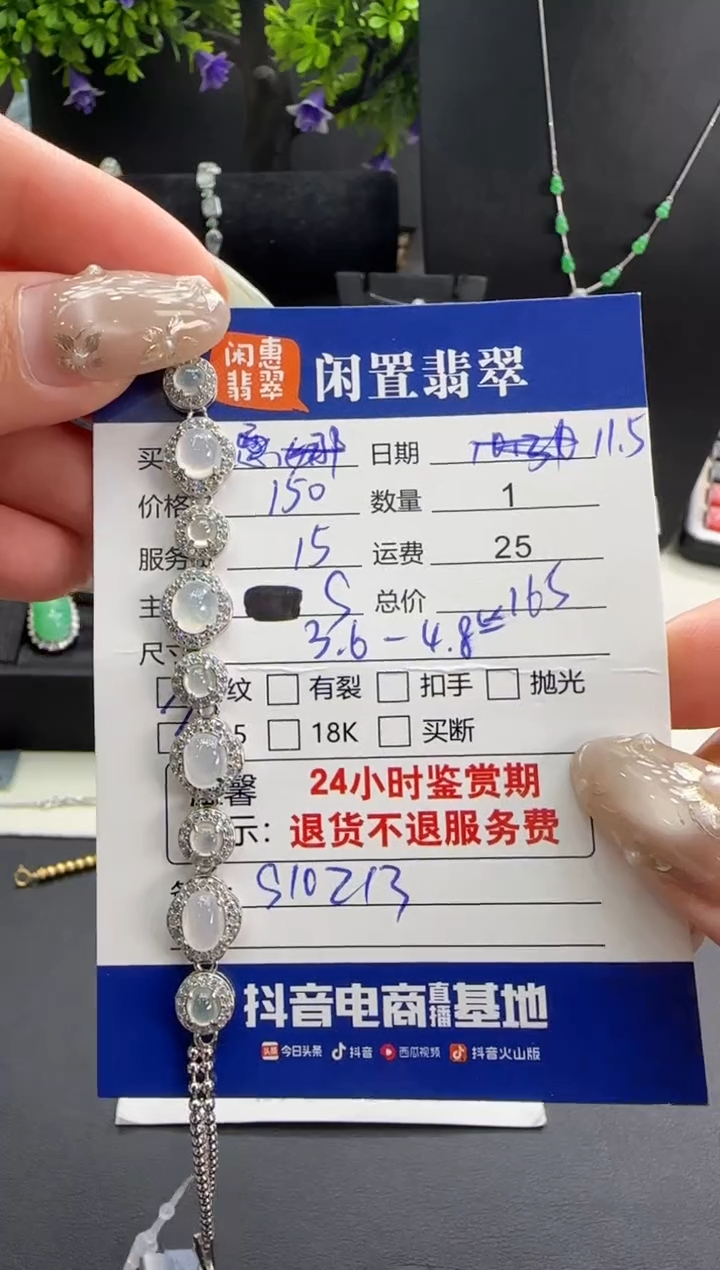 闲惠翡翠 闲置翡翠
买 日期 11.5
价格 150 数量 1
服务 15 运费 25
主 S 总价 165
尺寸 3.6-4.8
纹 有裂 扣手 抛光
5 18K 买断
馨 24小时鉴赏期
示: 退货不退服务费
S10213
抖音电商直播基地
头条 今日头条 抖音 西瓜视频 抖音火山版